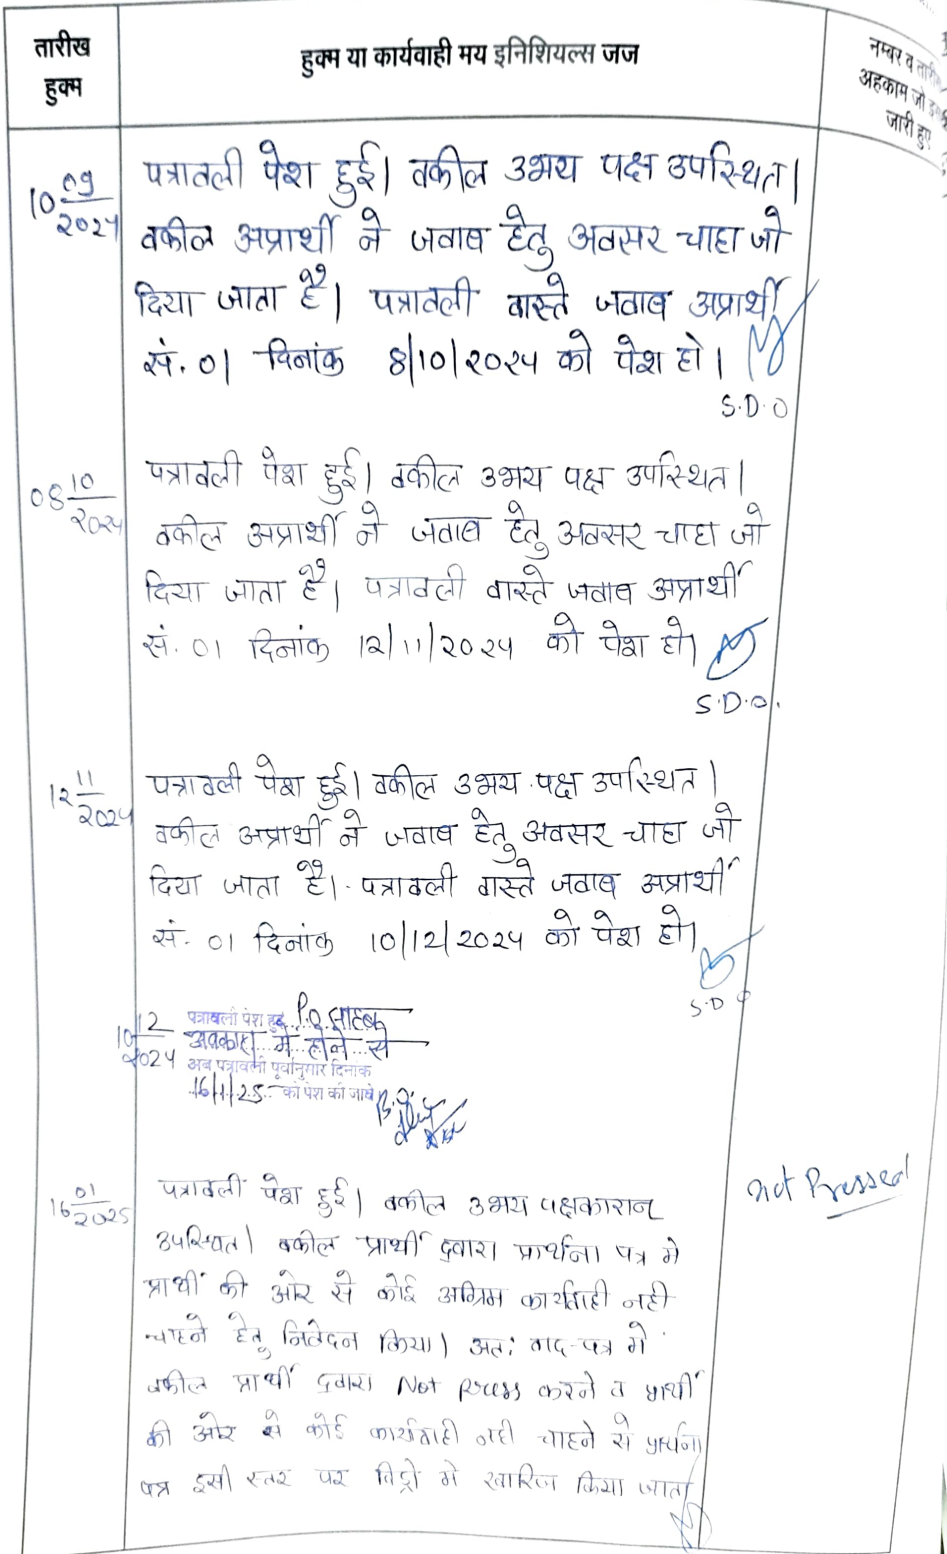 तारीख
हुक्म
हुक्म या कार्यवाही मय इनिशियल्स जज
नम्बर व तारीख
अहकाम जो इस
जारी हुए
10 09/2024
पत्रावली पेश हुई। वकील उभय पक्ष उपस्थित।
वकील अप्रार्थी ने जवाब हेतु अवसर चाहा जो
दिया जाता है। पत्रावली वास्ते जवाब अप्रार्थी
सं. 01 दिनांक 8/10/2024 को पेश हो।
S.D.O
08 10/2024
पत्रावली पेश हुई। वकील उभय पक्ष उपस्थित।
वकील अप्रार्थी ने जवाब हेतु अवसर चाहा जो
दिया जाता है। पत्रावली वास्ते जवाब अप्रार्थी
सं. 01 दिनांक 12/11/2024 को पेश हो।
S.D.O.
12 11/2024
पत्रावली पेश हुई। वकील उभय पक्ष उपस्थित।
वकील अप्रार्थी ने जवाब हेतु अवसर चाहा जो
दिया जाता है। पत्रावली वास्ते जवाब अप्रार्थी
सं. 01 दिनांक 10/12/2024 को पेश हो।
S.D.O
10 12/2024
पत्रावली पेश हुई P.O. साहब
अवकाश में होने से
अब पत्रावली पूर्वानुसार दिनांक
16/1/25 को पेश की जावे
16 01/2025
पत्रावली पेश हुई। वकील उभय पक्षकारान्
उपस्थित। वकील प्रार्थी द्वारा प्रार्थना पत्र मे
प्रार्थी की ओर से कोई अग्रिम कार्यवाही नही
चाहने हेतु निवेदन किया। अतः वाद-पत्र मे
वकील प्रार्थी द्वारा Not Press करने व प्रार्थी
की ओर से कोई कार्यवाही नही चाहने से प्रार्थना
पत्र इसी स्तर पर विड्रो मे खारिज किया जाता
not Pressed